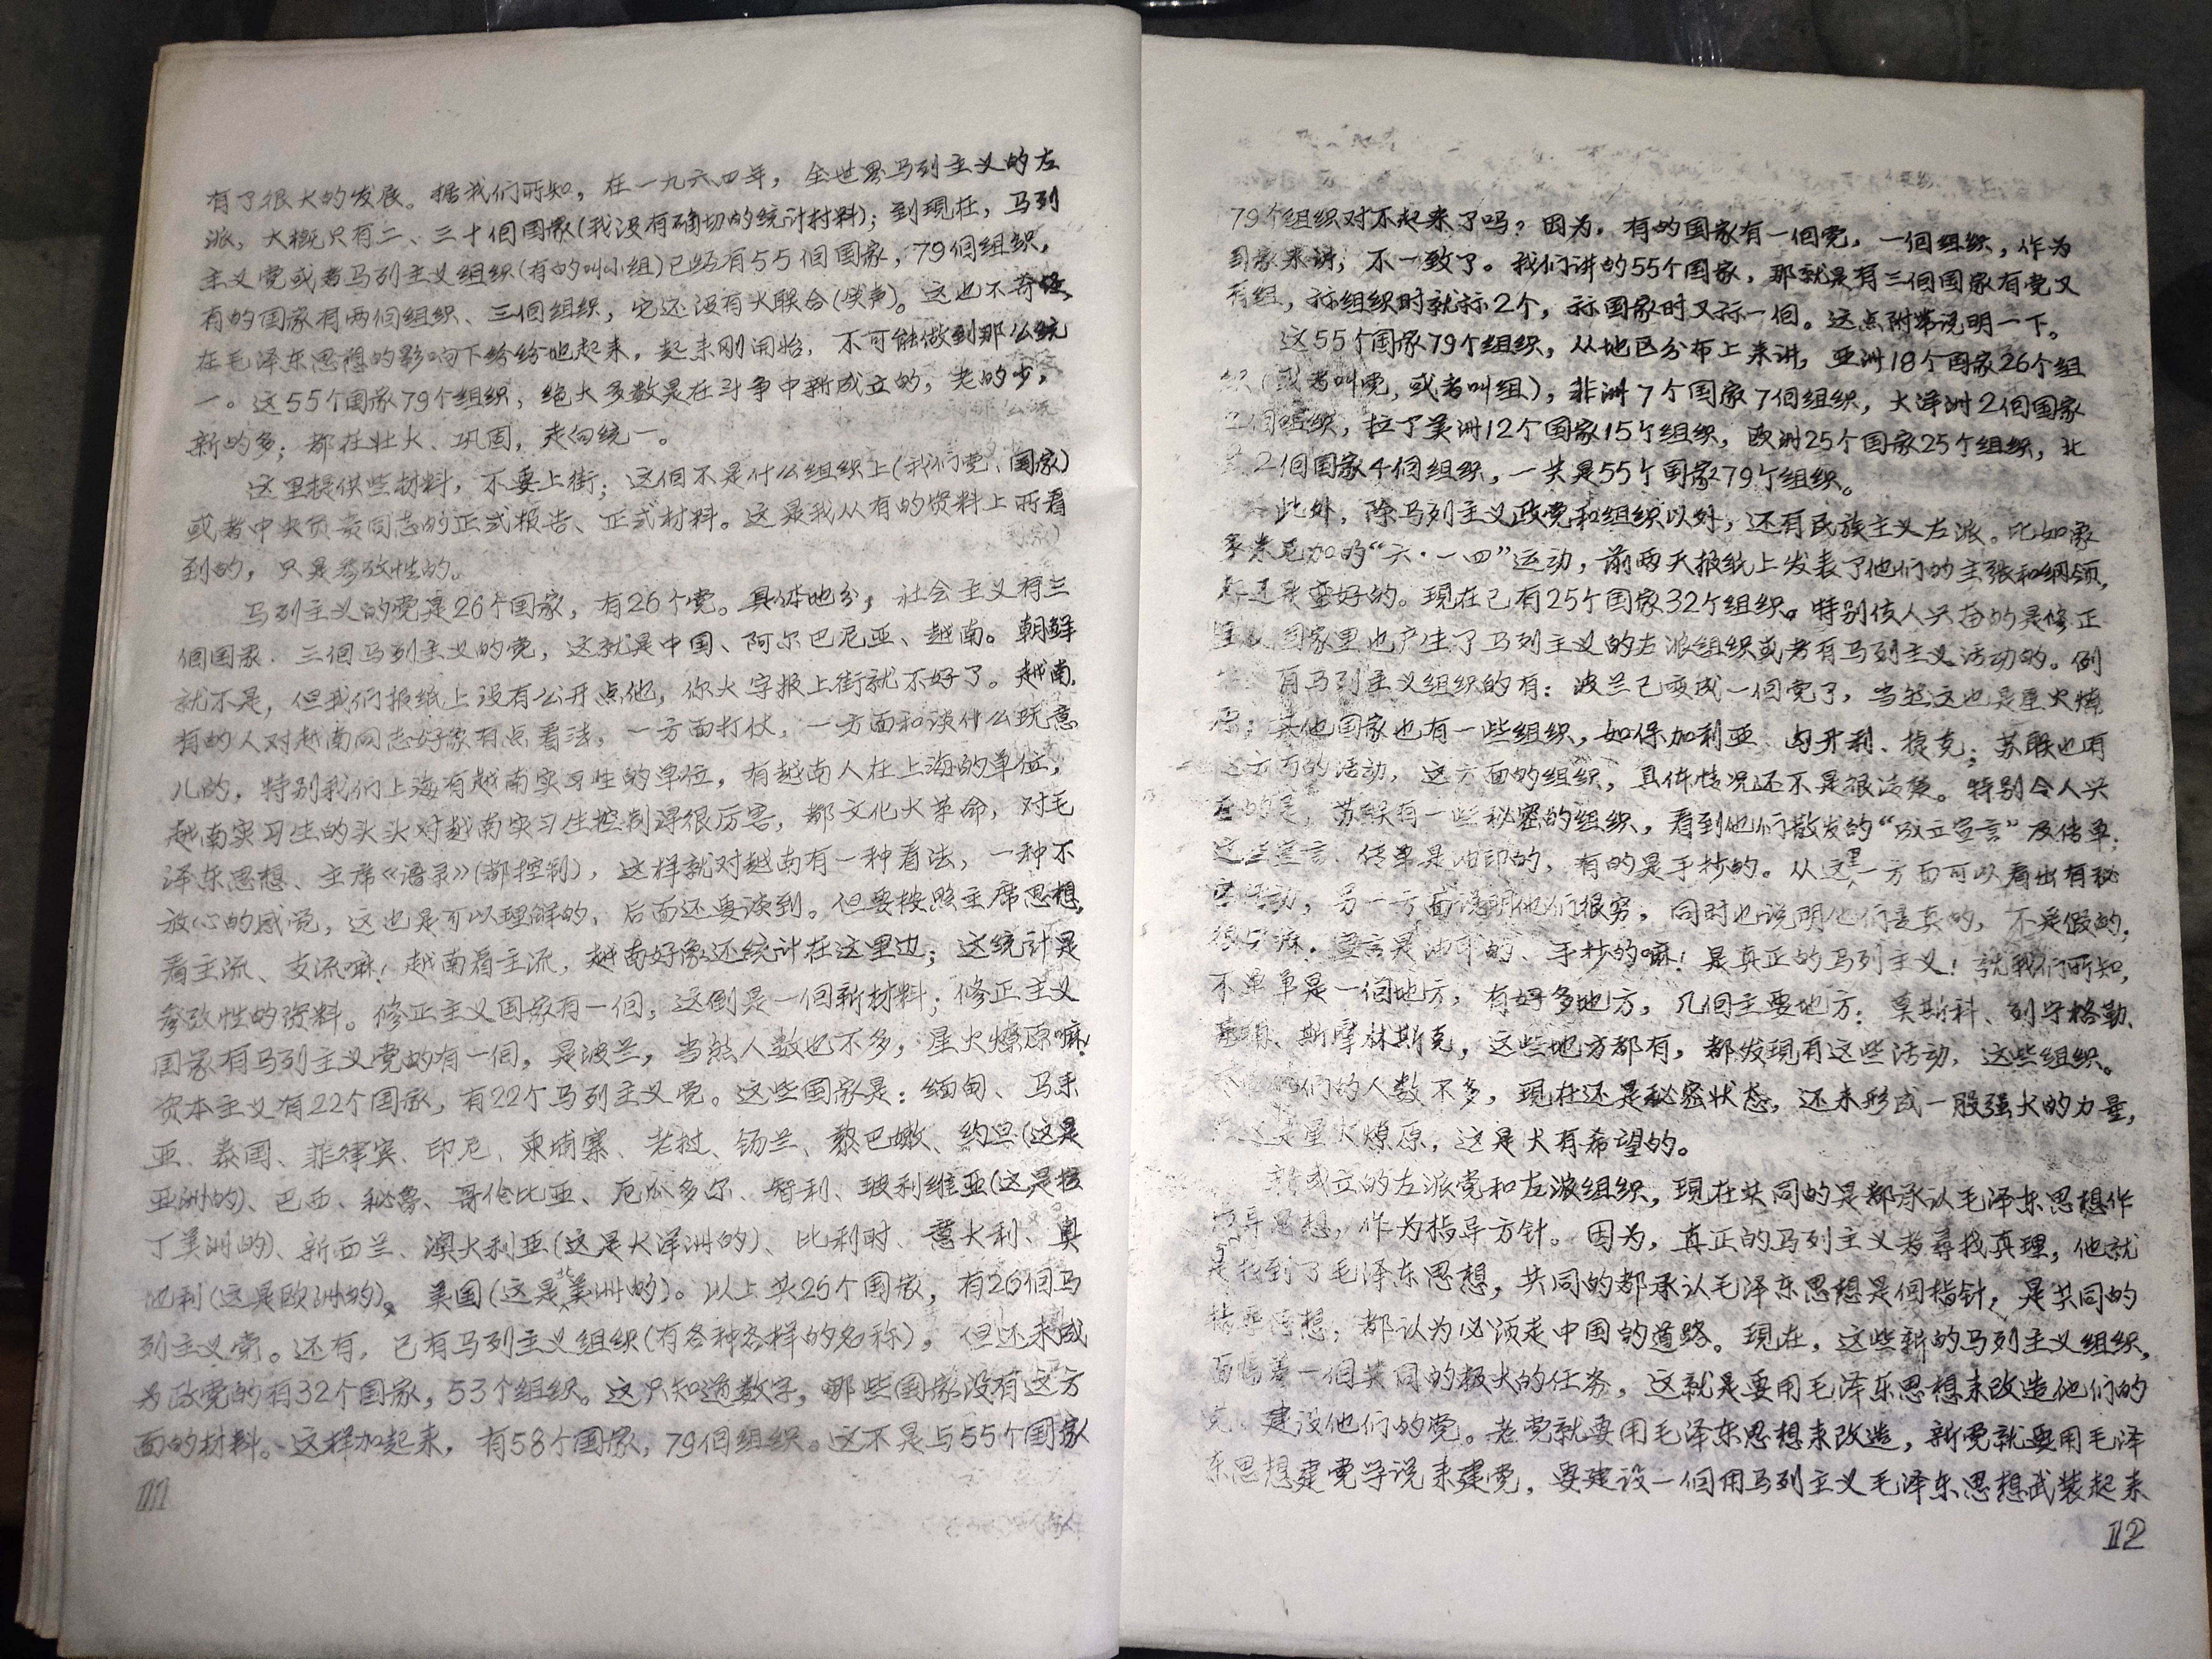 有了很大的发展。据我们所知，在一九六四年，全世界马列主义的左
派，大概只有二、三十個国家(我没有确切的统计材料)；到现在，马列
主义党或者马列主义组织(有的叫小组)已经有55個国家，79個组织，
有的国家有两個组织、三個组织，它还没有大联合(笑声)。这也不奇怪，
在毛泽东思想的影响下纷纷地起来，起来刚开始，不可能做到那么统
一。这55个国家79个组织，绝大多数是在斗争中新成立的，老的少，
新的多；都在壮大、巩固，走向统一。
这里提供些材料，不要上街；这個不是什么组织上(我们党、国家)
或者中央负责同志的正式报告、正式材料。这是我从有的资料上所看
到的，只是参攷性的。
马列主义的党是26个国家，有26个党。具体地分，社会主义有三
個国家，三個马列主义的党，这就是中国、阿尔巴尼亚、越南。朝鲜
就不是，但我们报纸上没有公开点他，你大字报上街就不好了。越南，
有的人对越南同志好象有点看法，一方面打仗，一方面和谈什么玩意
儿的，特别我们上海有越南实习性的单位，有越南人在上海的单位，
越南实习生的头头对越南实习生控制得很厉害，都文化大革命，对毛
泽东思想、主席《语录》(都控制)，这样就对越南有一种看法，一种不
放心的感觉，这也是可以理解的，后面还要谈到。但要按照主席思想，
看主流、支流嘛！越南看主流，越南好象还统计在这里边；这统计是
参攷性的资料。修正主义国家有一個，这倒是一個新材料；修正主义
国家有马列主义党的有一個，是波兰，当然人数也不多，星火燎原嘛！
资本主义有22个国家，有22个马列主义党。这些国家是：缅甸、马来
亚、泰国、菲律宾、印尼、柬埔寨、老挝、锡兰、黎巴嫩、约旦(这是
亚洲的)、巴西、秘鲁、哥伦比亚、厄瓜多尔、智利、玻利维亚(这是拉
丁美洲的)、新西兰、澳大利亚(这是大洋洲的)、比利时、意大利、奥
地利(这是欧洲的)。美国(这是北美洲的)。以上共26个国家，有26個马
列主义党。还有，已有马列主义组织(有各种各样的名称)，但还未成
为政党的有32个国家，53个组织。这只知道数字，哪些国家没有这方
面的材料。这样加起来，有58个国家，79個组织。这不是与55个国家
11
79个组织对不起来了吗？因为，有的国家有一個党，一個组织，作为
国家来讲，不一致了。我们讲的55个国家，那就是有三個国家有党又
有组，标组织时就标2个，标国家时又标一個。这点附带说明一下。
这55个国家79个组织，从地区分布上来讲，亚洲18个国家26个组
织(或者叫党，或者叫组)，非洲7个国家7個组织，大洋洲2個国家
個组织，拉丁美洲12个国家15个组织，欧洲25个国家25个组织，北
美2個国家4個组织，一共是55个国家79个组织。
此外，除马列主义政党和组织以外，还有民族主义左派。比如象
多米尼加的“六·一四”运动，前两天报纸上发表了他们的主张和纲领，
蛮好的。现在已有25个国家32个组织。特别使人兴奋的是修正
主义国家里也产生了马列主义的左派组织或者有马列主义活动的。例
有马列主义组织的有：波兰已变成一個党了，当然这也是星火燎
原；其他国家也有一些组织，如保加利亚、匈牙利、捷克；苏联也有
这方面的活动，这方面的组织，具体情况还不是很清楚。特别令人兴
奋的是，苏联有一些秘密的组织，看到他们散发的“成立宣言”及传单；
这些宣言、传单是油印的，有的是手抄的。从这里一方面可以看出有秘
密活动，另一方面说明他们很穷，同时也说明他们是真的，不是假的。
很穷嘛，宣言是油印的、手抄的嘛！是真正的马列主义！就我们所知，
不单单是一個地方，有好多地方，几個主要地方：莫斯科、列宁格勒、
斯摩林斯克，这些地方都有，都发现有这些活动，这些组织。
他们的人数不多，现在还是秘密状态，还未形成一股强大的力量，
这是星火燎原，这是大有希望的。
新成立的左派党和左派组织，现在共同的是都承认毛泽东思想作
指导思想，作为指导方针。因为，真正的马列主义者寻找真理，他就
是找到了毛泽东思想，共同的都承认毛泽东思想是個指针，是共同的
指导思想，都认为必须走中国的道路。现在，这些新的马列主义组织，
面临着一個共同的极大的任务，这就是要用毛泽东思想来改造他们的
党、建设他们的党。老党就要用毛泽东思想来改造，新党就要用毛泽
东思想建党学说来建党，要建设一個用马列主义毛泽东思想武装起来
12